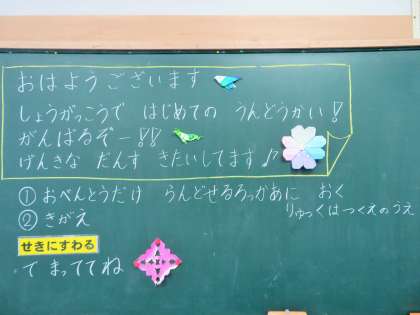 おはようございます
しょうがっこうで はじめての うんどうかい!
がんばるぞー!!
げんきな だんす きたいしてます♪
① おべんとうだけ らんどせるろっかあに おく
りゅっくはつくえのうえ
② きがえ
せきにすわる
で まっててね